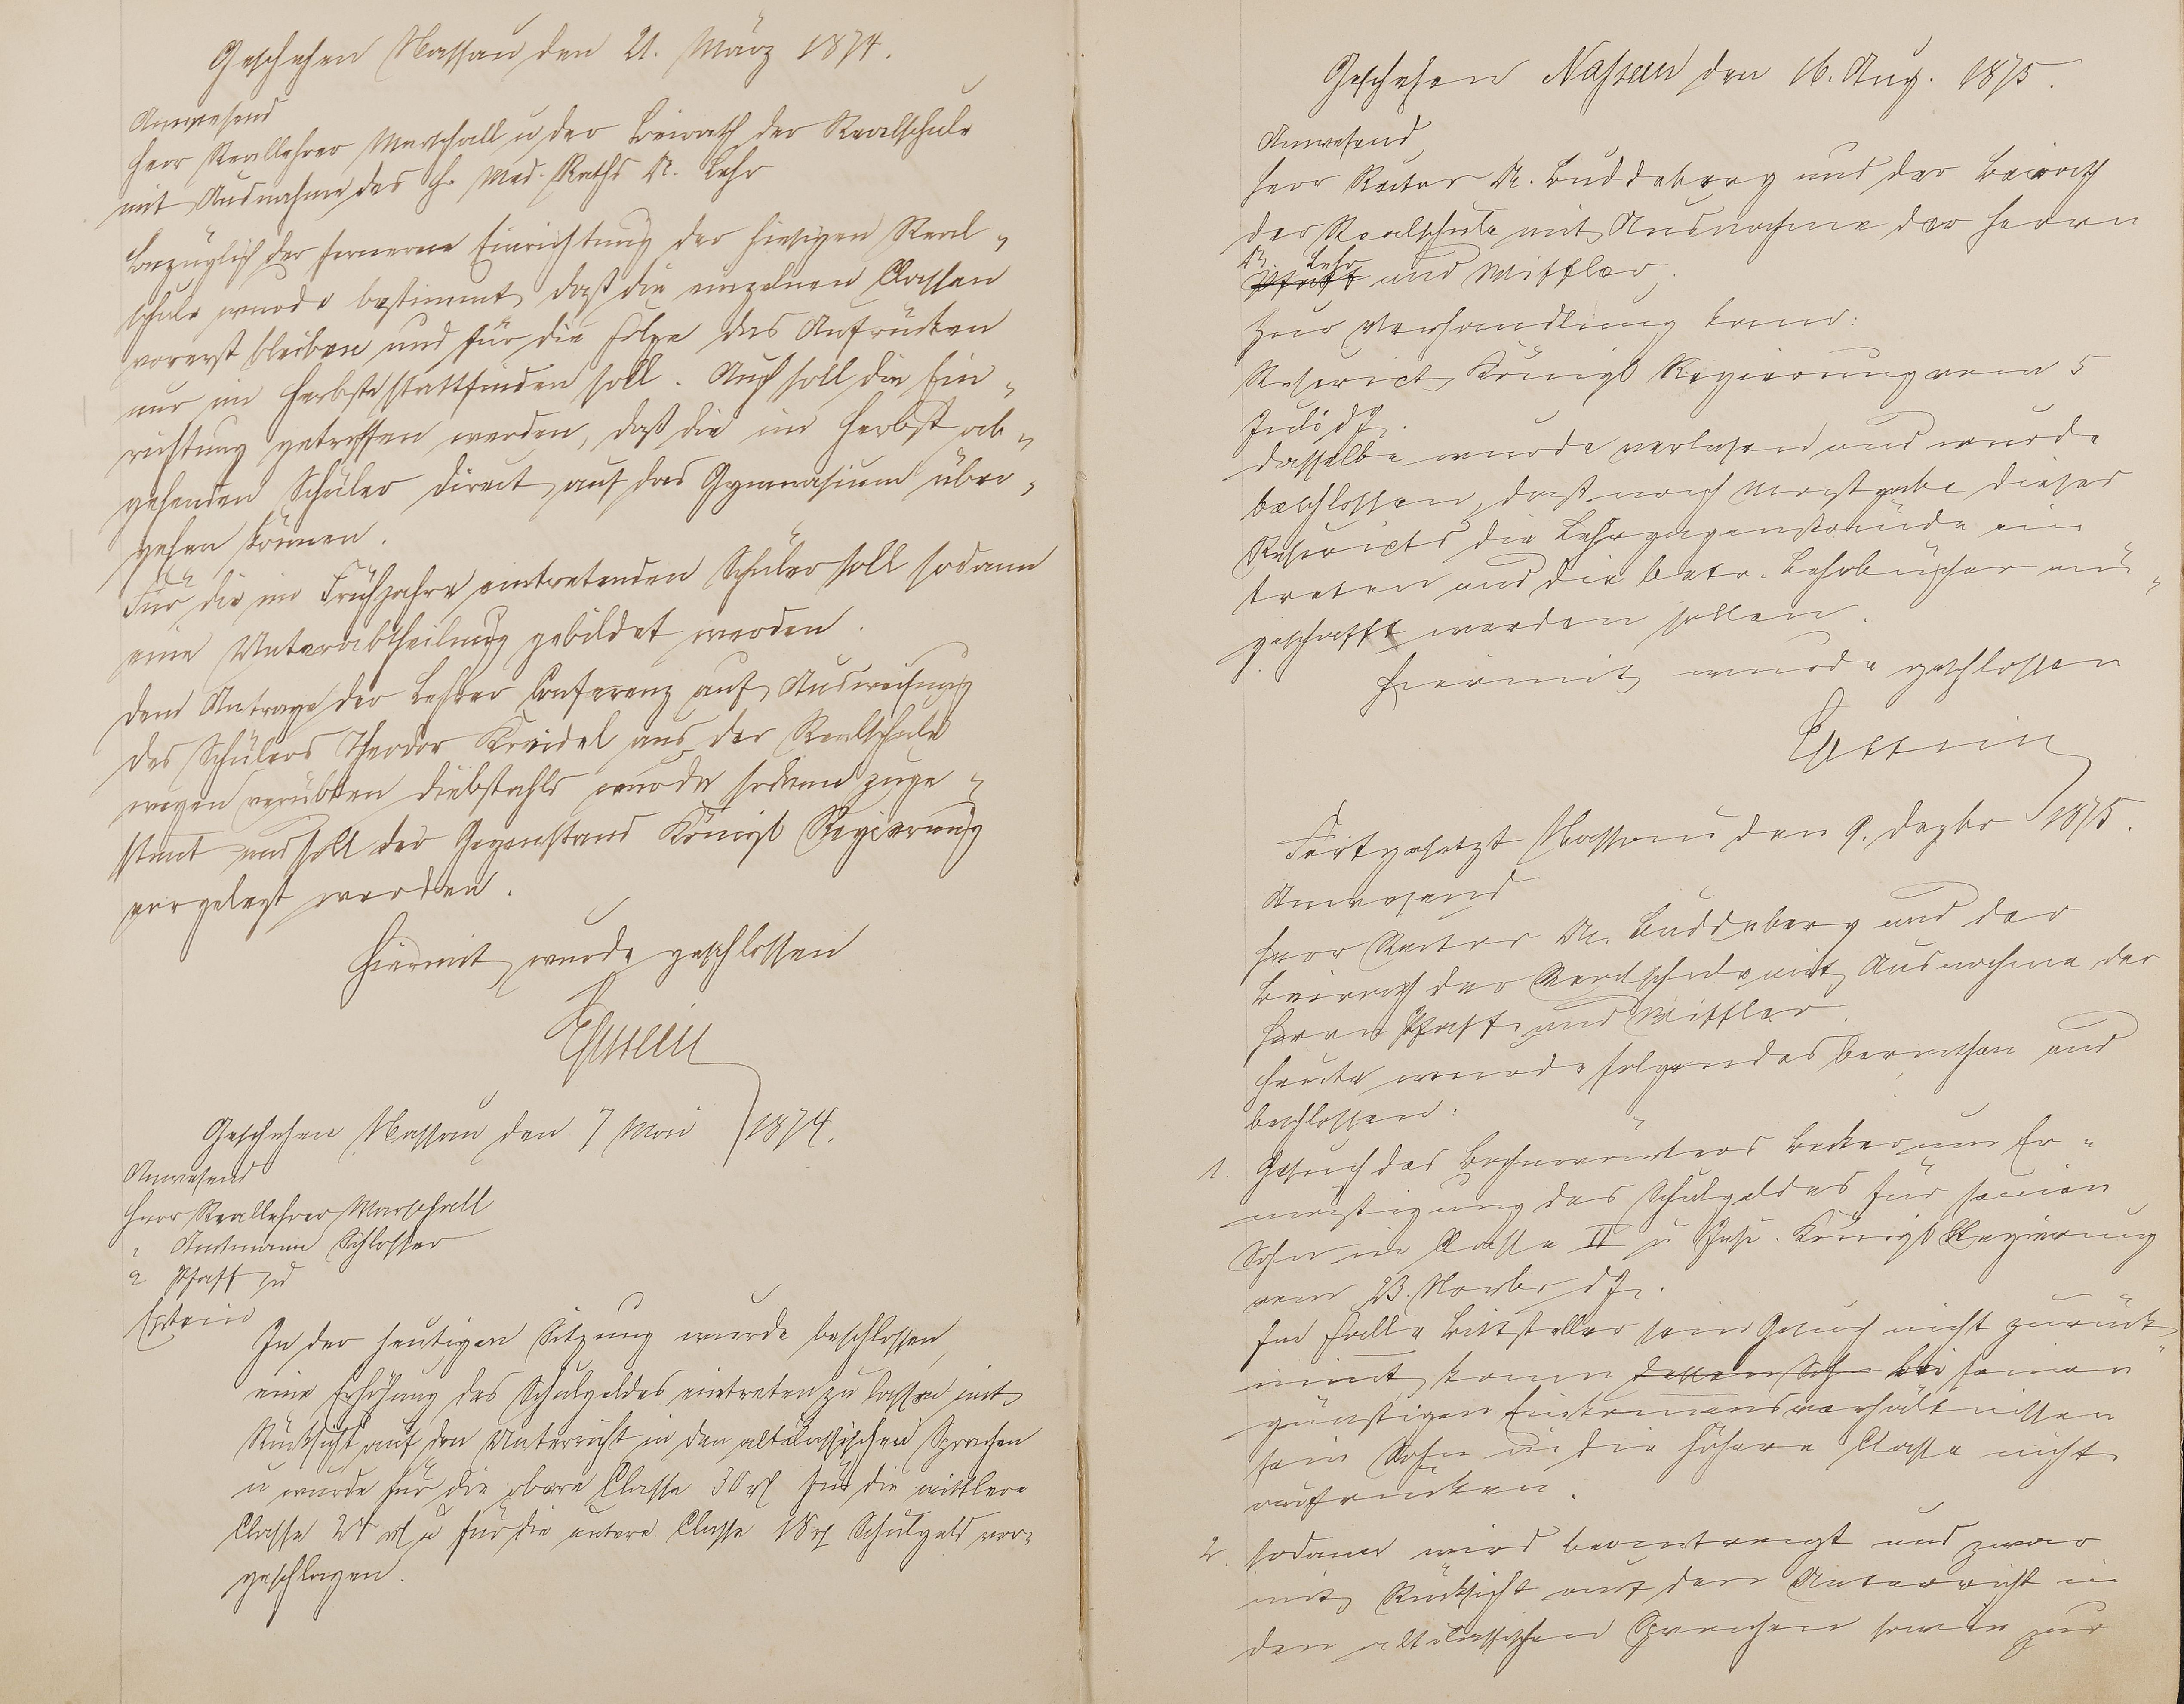 Geschehen Nassau den 21. März 1874.
Anwesend
Herr Reallehrer Marschall u der Beirath der Realschule
mit Ausnahme des H. Med. Raths Dr. Lehr
Bezüglich der ferneren Einrichtung der hiesigen Real-
schule wurde bestimmt, daß die einzelnen Classen
vorerst bleiben und für die Folge das Aufrücken
nur im Herbste stattfinden soll. Auch soll die Ein-
richtung getroffen werden, daß die im Herbst ab-
gehenden Schüler direct auf das Gymnasium über-
gehen können.
Für die im Frühjahre eintretenden Schüler soll sodann
eine Unterabtheilung gebildet werden.
Dem Antrage der Lehrer Conferenz auf Ausweisung
des Schülers Theodor Kreidel aus der Realschule
wegen verübten Diebstahls wurde sodann zuge-
stimt und soll der Gegenstand Königl Regierung
vorgelegt werden.
Hiermit wurde geschlossen
Epstein
Geschehen Nassau den 7 Mai 1874.
Anwesend
Herr Reallehrer Marschall
" Amtmann Schlosser
" Pfaff und
Epstein
In der heutigen Sitzung wurde beschlossen,
eine Erhöhung des Schulgeldes eintreten zu lassen mit
Rücksicht auf den Unterricht in den altclassischen Sprachen
u wurde für die obere Classe 30 rf für die mittlere
Classe 24 rf u für die untere Classe 18 rf Schulgeld vor-
geschlagen.
Geschehen Nassau den 16. Aug. 1875.
Anwesend
Herr Rector Dr. Buddeberg und der Beirath
der Realschule mit Ausnahme der Herrn
Dr. Lehr
Pfaff und Mißler.
Zur Verhandlung kam:
Rescript Königl Regierung vom 5
Juli dJ.
Dasselbe wurde verlesen und wurde
beschlossen, daß nach Maßgabe dieses
Rescripts die Lehrgegenstände ein
treten und die betr. Lehrbücher an-
geschafft werden sollen.
Hiermit wurde geschlossen
Epstein
Fortgesetzt Nassau den 9. Dezbr 1875.
Anwesend
Herr Rector Dr. Buddeberg und der
Beirath der Realschule mit Ausnahme der
Herrn Pfaff und Mißler.
Heute wurde folgendes berathen und
beschlossen:
1. Gesuch des Bahnwärters Becker um Er-
mäßigung des Schulgeldes für seinen
Sohn in Classe II u Rescr. Königl Regierung
vom 23. Novbr dJ.
Im Falle Bittsteller sein Gesuch nicht zurück-
nimt, kann dessen Sohn bei seinen
günstigen Einkommensverhältnissen
sein Sohn in die höhere Classe nicht
aufrücken.
2. Sodann wird beantragt und zwar
mit Rücksicht auf den Unterricht in
den altclassischen Sprachen sowie zur